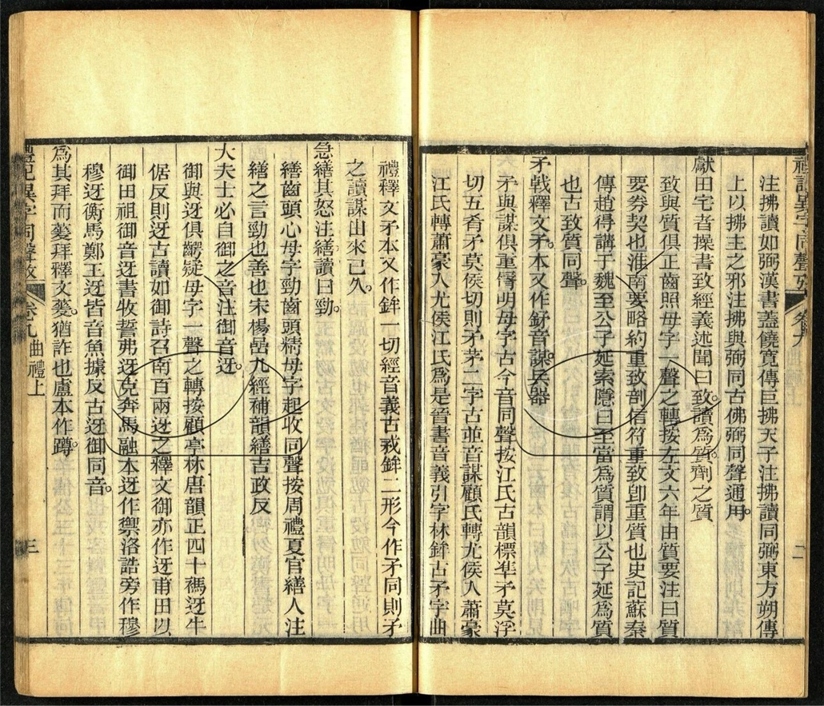 禮記異字同聲攷 卷九
注拂讀如弼漢書蓋饒寬傳巨拂天子注拂讀同弼東方朔傳
上以拂主之邪注拂與弼同古佛弼同聲通用
獻田宅者操書致經義述聞曰致讀爲質劑之質
致與質俱正齒照母字一聲之轉按左文六年由質要注曰質
要券契也淮南要略約重致剖信符重致卽重質也史記蘇秦
傳趙得講于魏至公子延索隱曰至當爲質謂以公子延爲質
也古致質同聲
矛戟釋文矛本又作䥐音謀兵器
矛與謀俱重脣明母字古今音同聲按江氏古韻標準矛莫浮
切五肴矛莫侯切則矛茅二字古並音謀顧氏轉尤侯入蕭豪
江氏轉蕭豪入尤侯江氏爲是晉書音義引字林鉾古矛字曲
二
禮釋文矛本又作鉾一切經音義古𢦧鉾二形今作矛同則矛
之讀謀由來已久
急繕其怒注繕讀曰勁
繕齒頭心母字勁齒頭精母字起收同聲按周禮夏官繕人注
繕之言勁也善也宋楊嵒九經補韻繕吉政反
大夫士必自御之音注御音迓
御與迓俱齶疑母字一聲之轉按顧亭林唐韻正四十禡迓牛
倨反則迓古讀如御詩召南百兩迓之釋文御亦作迓甫田以
御田祖御音迓書牧誓弗迓克奔馬融本迓作禦洛誥旁作穆
穆迓衡馬鄭王迓皆音魚據反古迓御同音
爲其拜而蓌拜釋文蓌猶詐也盧本作蹲
禮記異字同聲攷 卷九 曲禮上
三